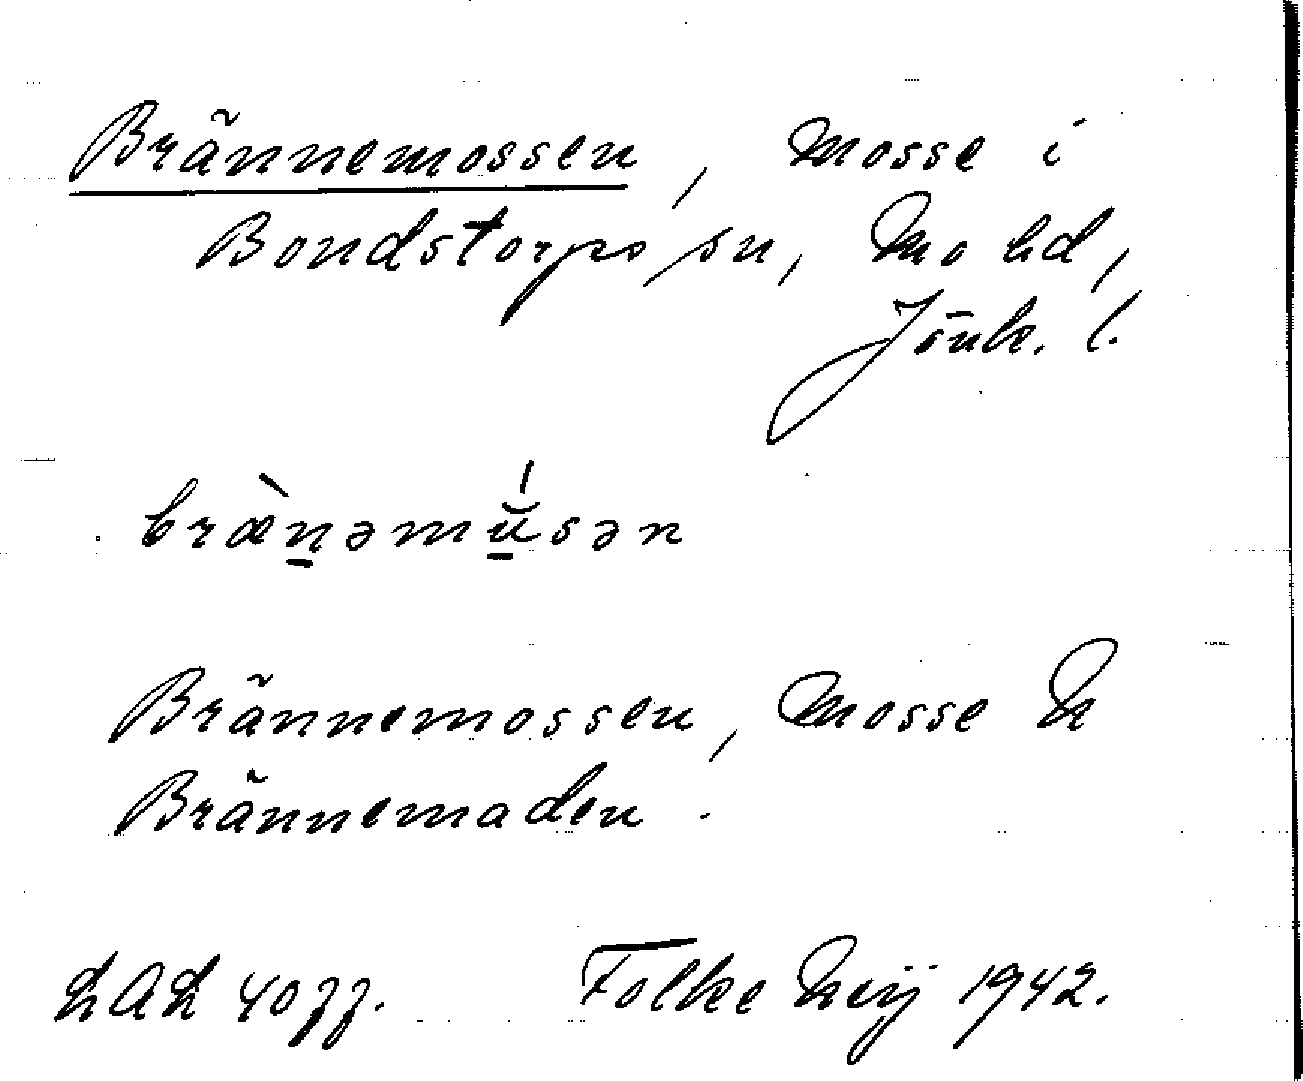 Brännemossen, Mosse i
Bondstorps sn, Mo hd,
Jönk. l.
brænəmŭsən
Brännemossen, Mosse N
Brännemaden.
Folke 1942.